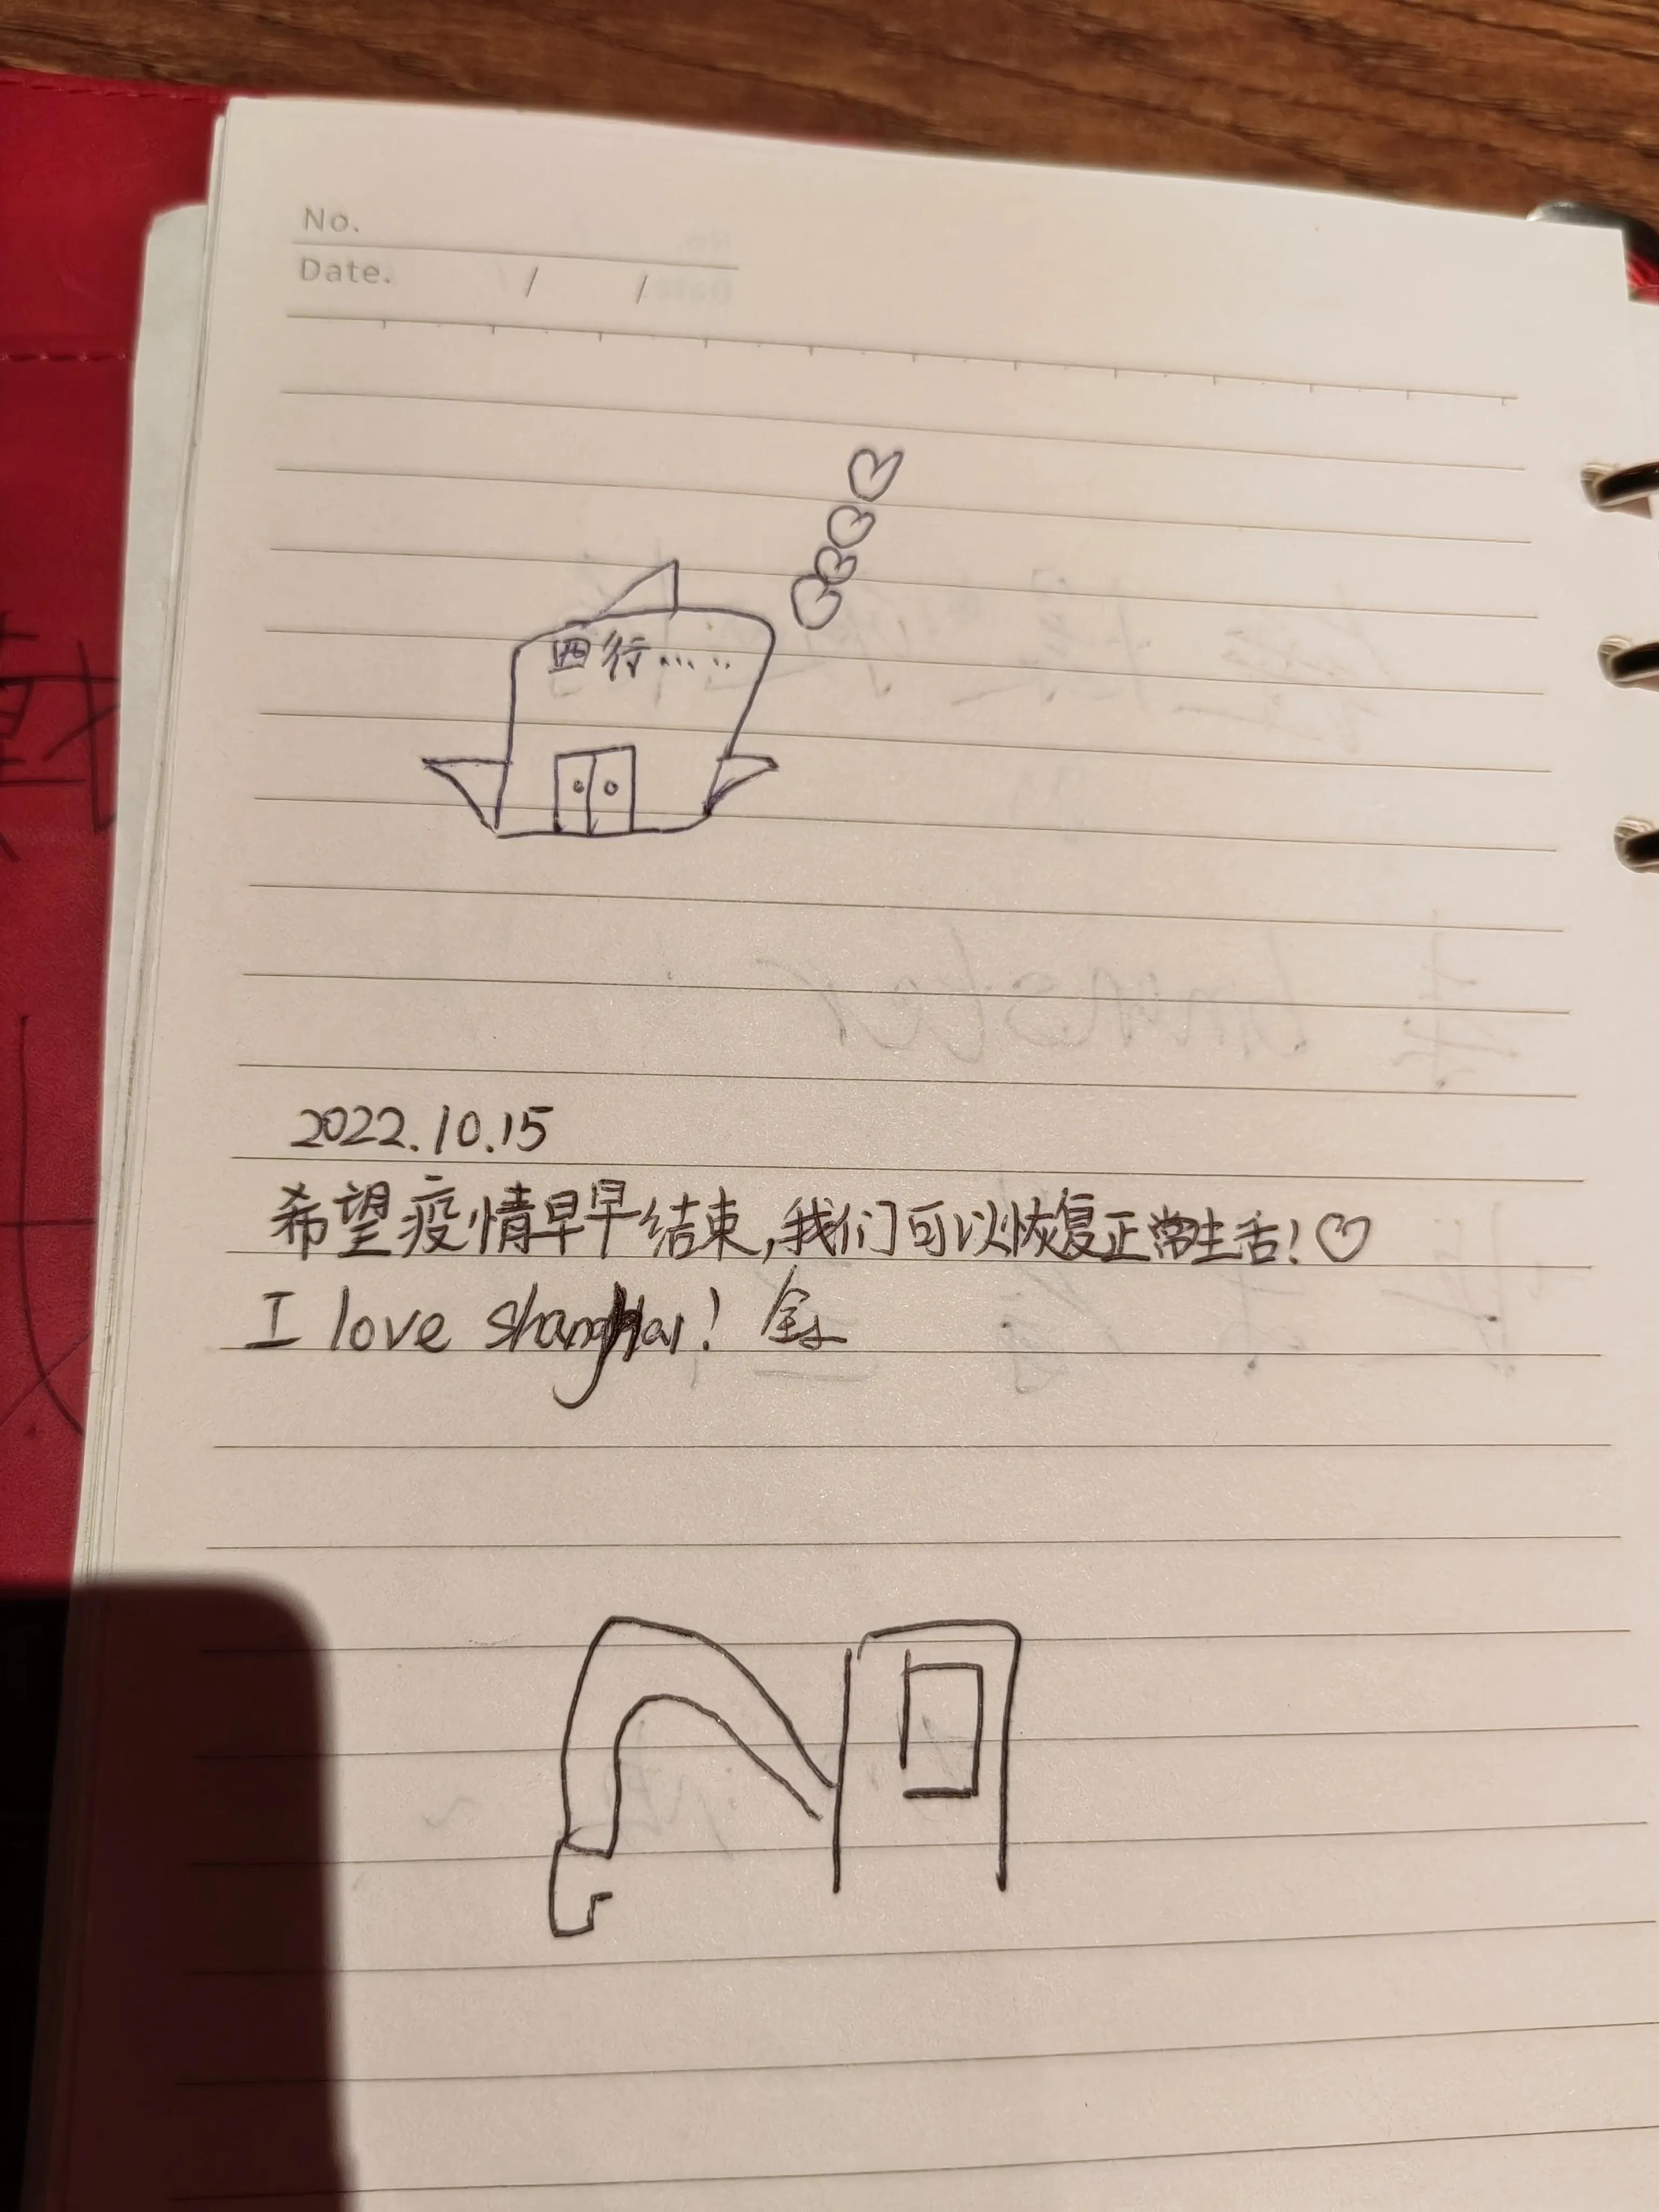 No.
Date. / /
四行……
2022.10.15
希望疫情早早结束,我们可以恢复正常生活!♡
I love shanghai!